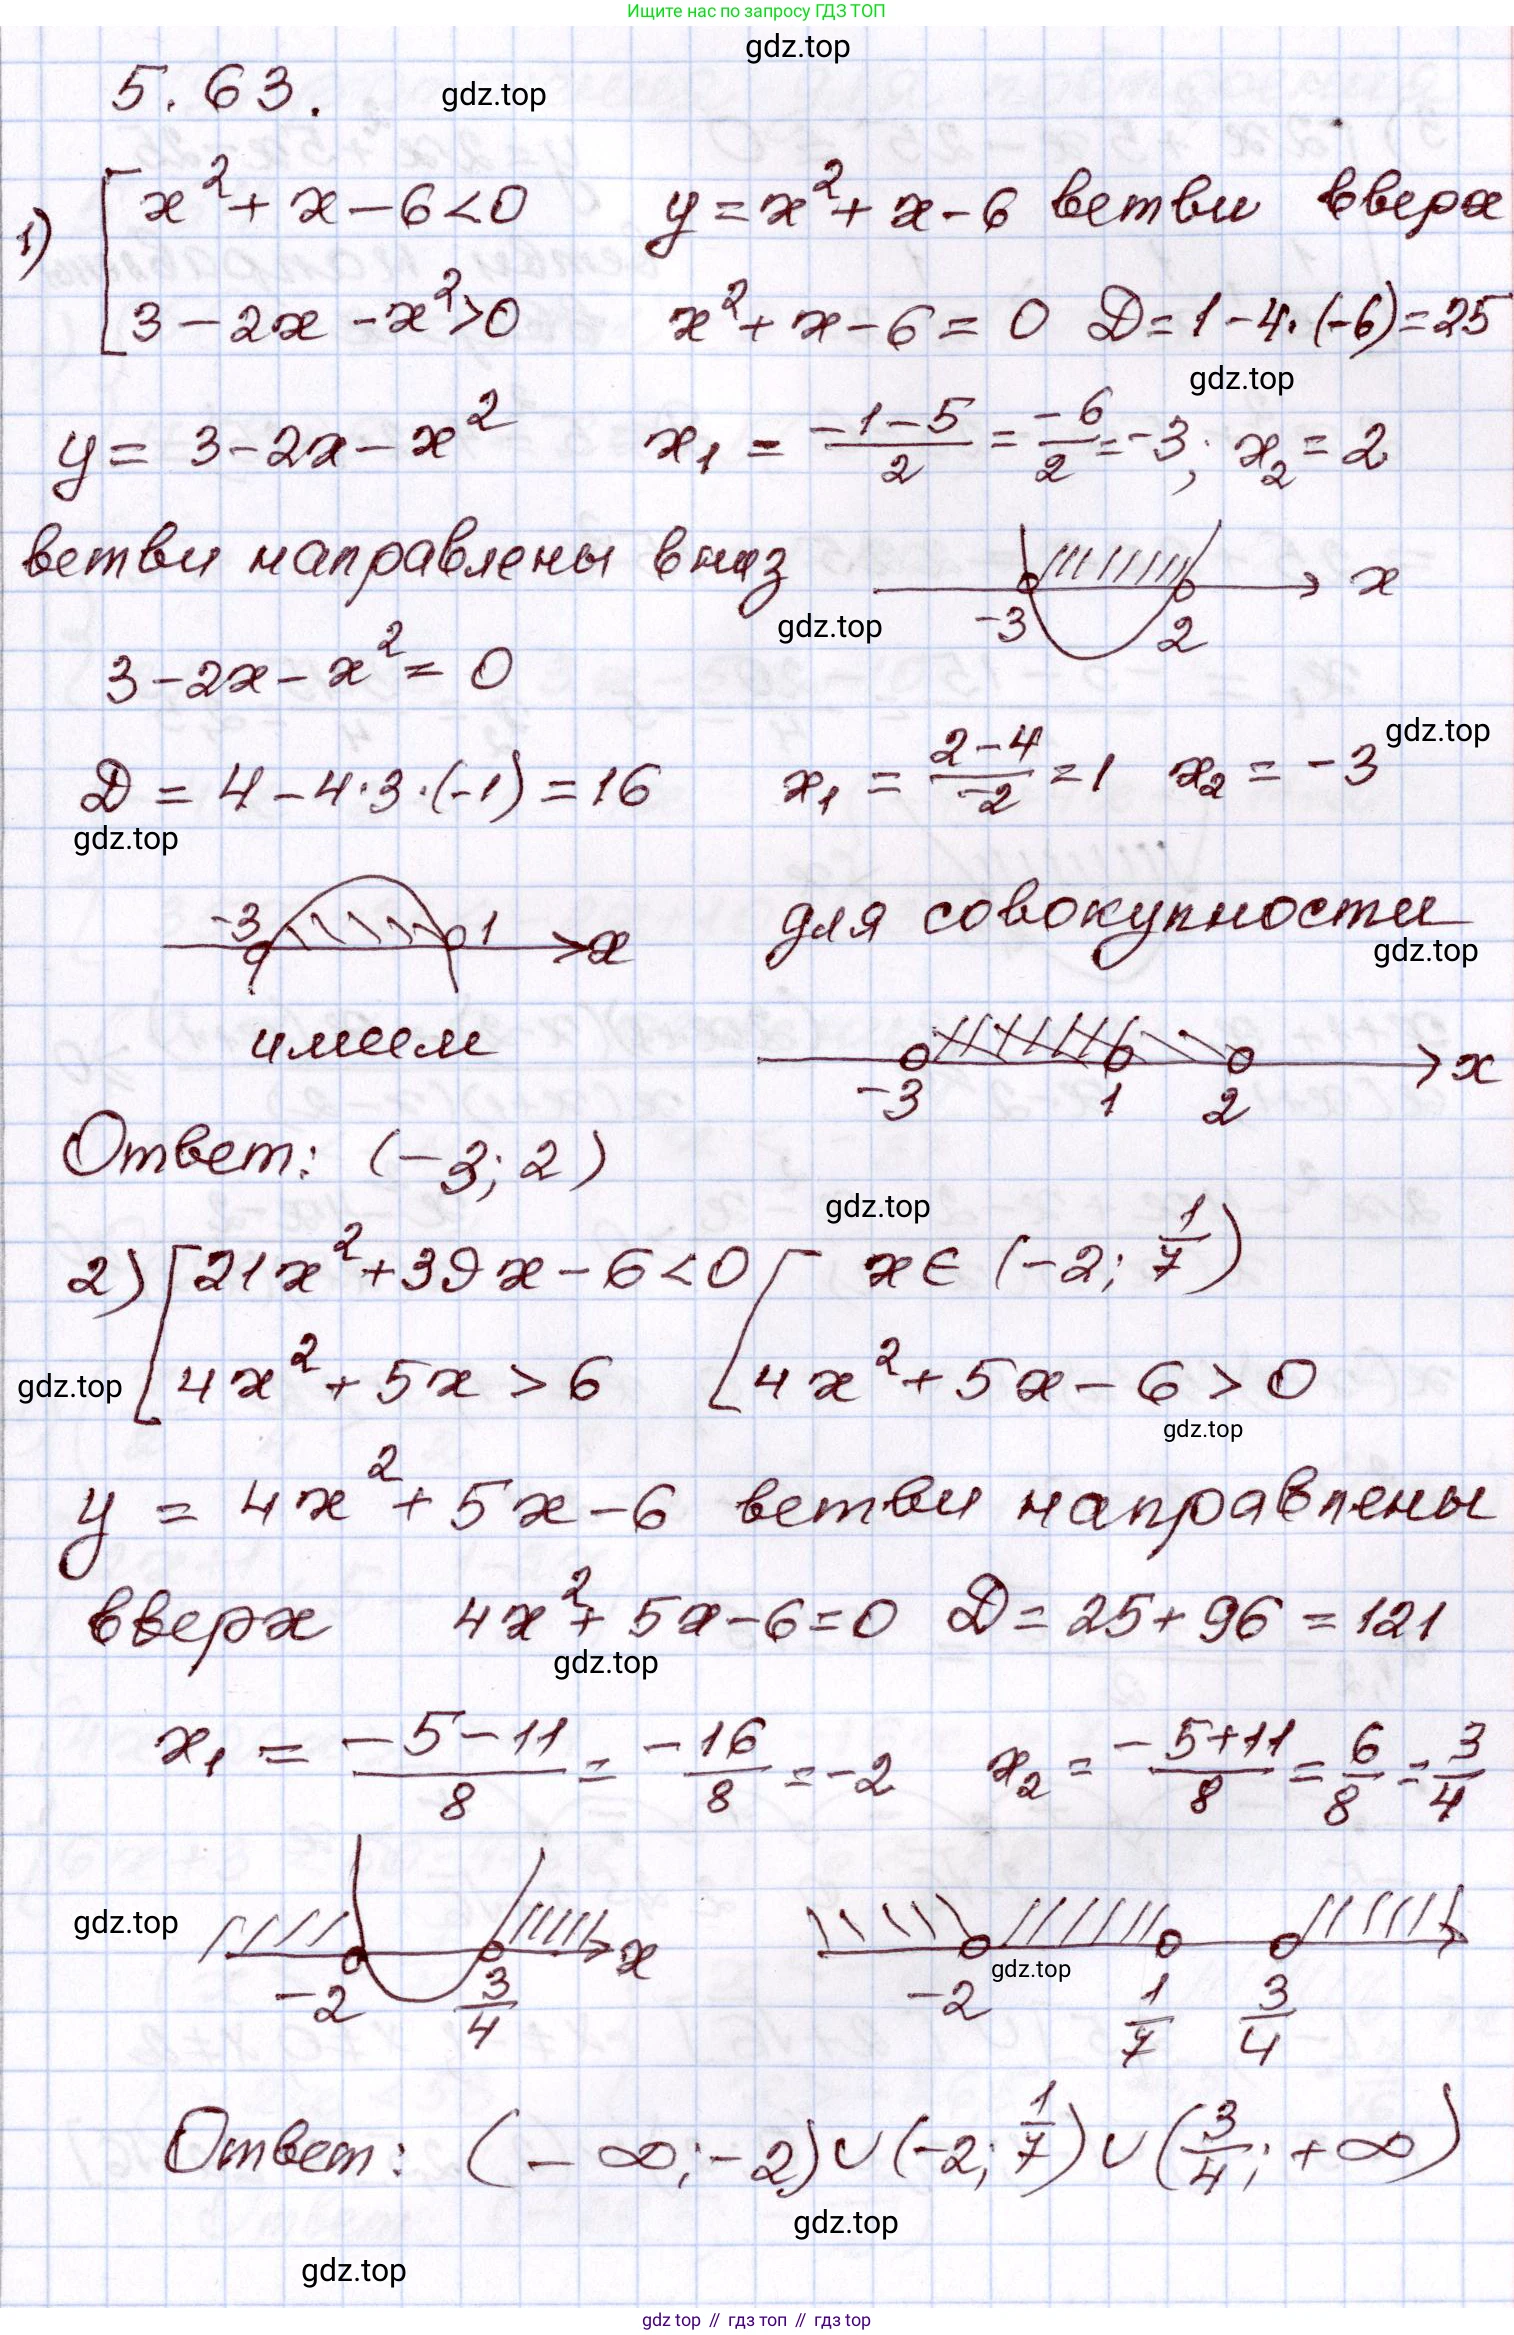 Ищите нас по запросу ГДЗ ТОП
gdz.top
5.63.
gdz.top
1) [ x² + x - 6 < 0 y = x² + x - 6 ветви вверх
3 - 2x - x² > 0 x² + x - 6 = 0 D = 1 - 4·(-6) = 25
gdz.top
y = 3 - 2x - x² x₁ = (-1-5)/2 = -6/2 = -3; x₂ = 2
ветви направлены вниз x
-3 2
gdz.top
3 - 2x - x² = 0
gdz.top
D = 4 - 4·3·(-1) = 16 x₁ = (2-4)/-2 = 1 x₂ = -3
gdz.top
-3 1 x для совокупности
gdz.top
имеем -3 1 2 x
Ответ: (-3; 2)
gdz.top
2) [ 21x² + 39x - 6 < 0 [ x ∈ (-2; 1/7)
gdz.top 4x² + 5x > 6 4x² + 5x - 6 > 0
gdz.top
y = 4x² + 5x - 6 ветви направлены
вверх 4x² + 5x - 6 = 0 D = 25 + 96 = 121
gdz.top
x₁ = (-5-11)/8 = -16/8 = -2 x₂ = (-5+11)/8 = 6/8 = 3/4
gdz.top
-2 3/4 x -2 1/7 3/4
gdz.top
Ответ: (-∞; -2) ∪ (-2; 1/7) ∪ (3/4; +∞)
gdz.top
gdz.top
gdz top // гдз топ // гдз top